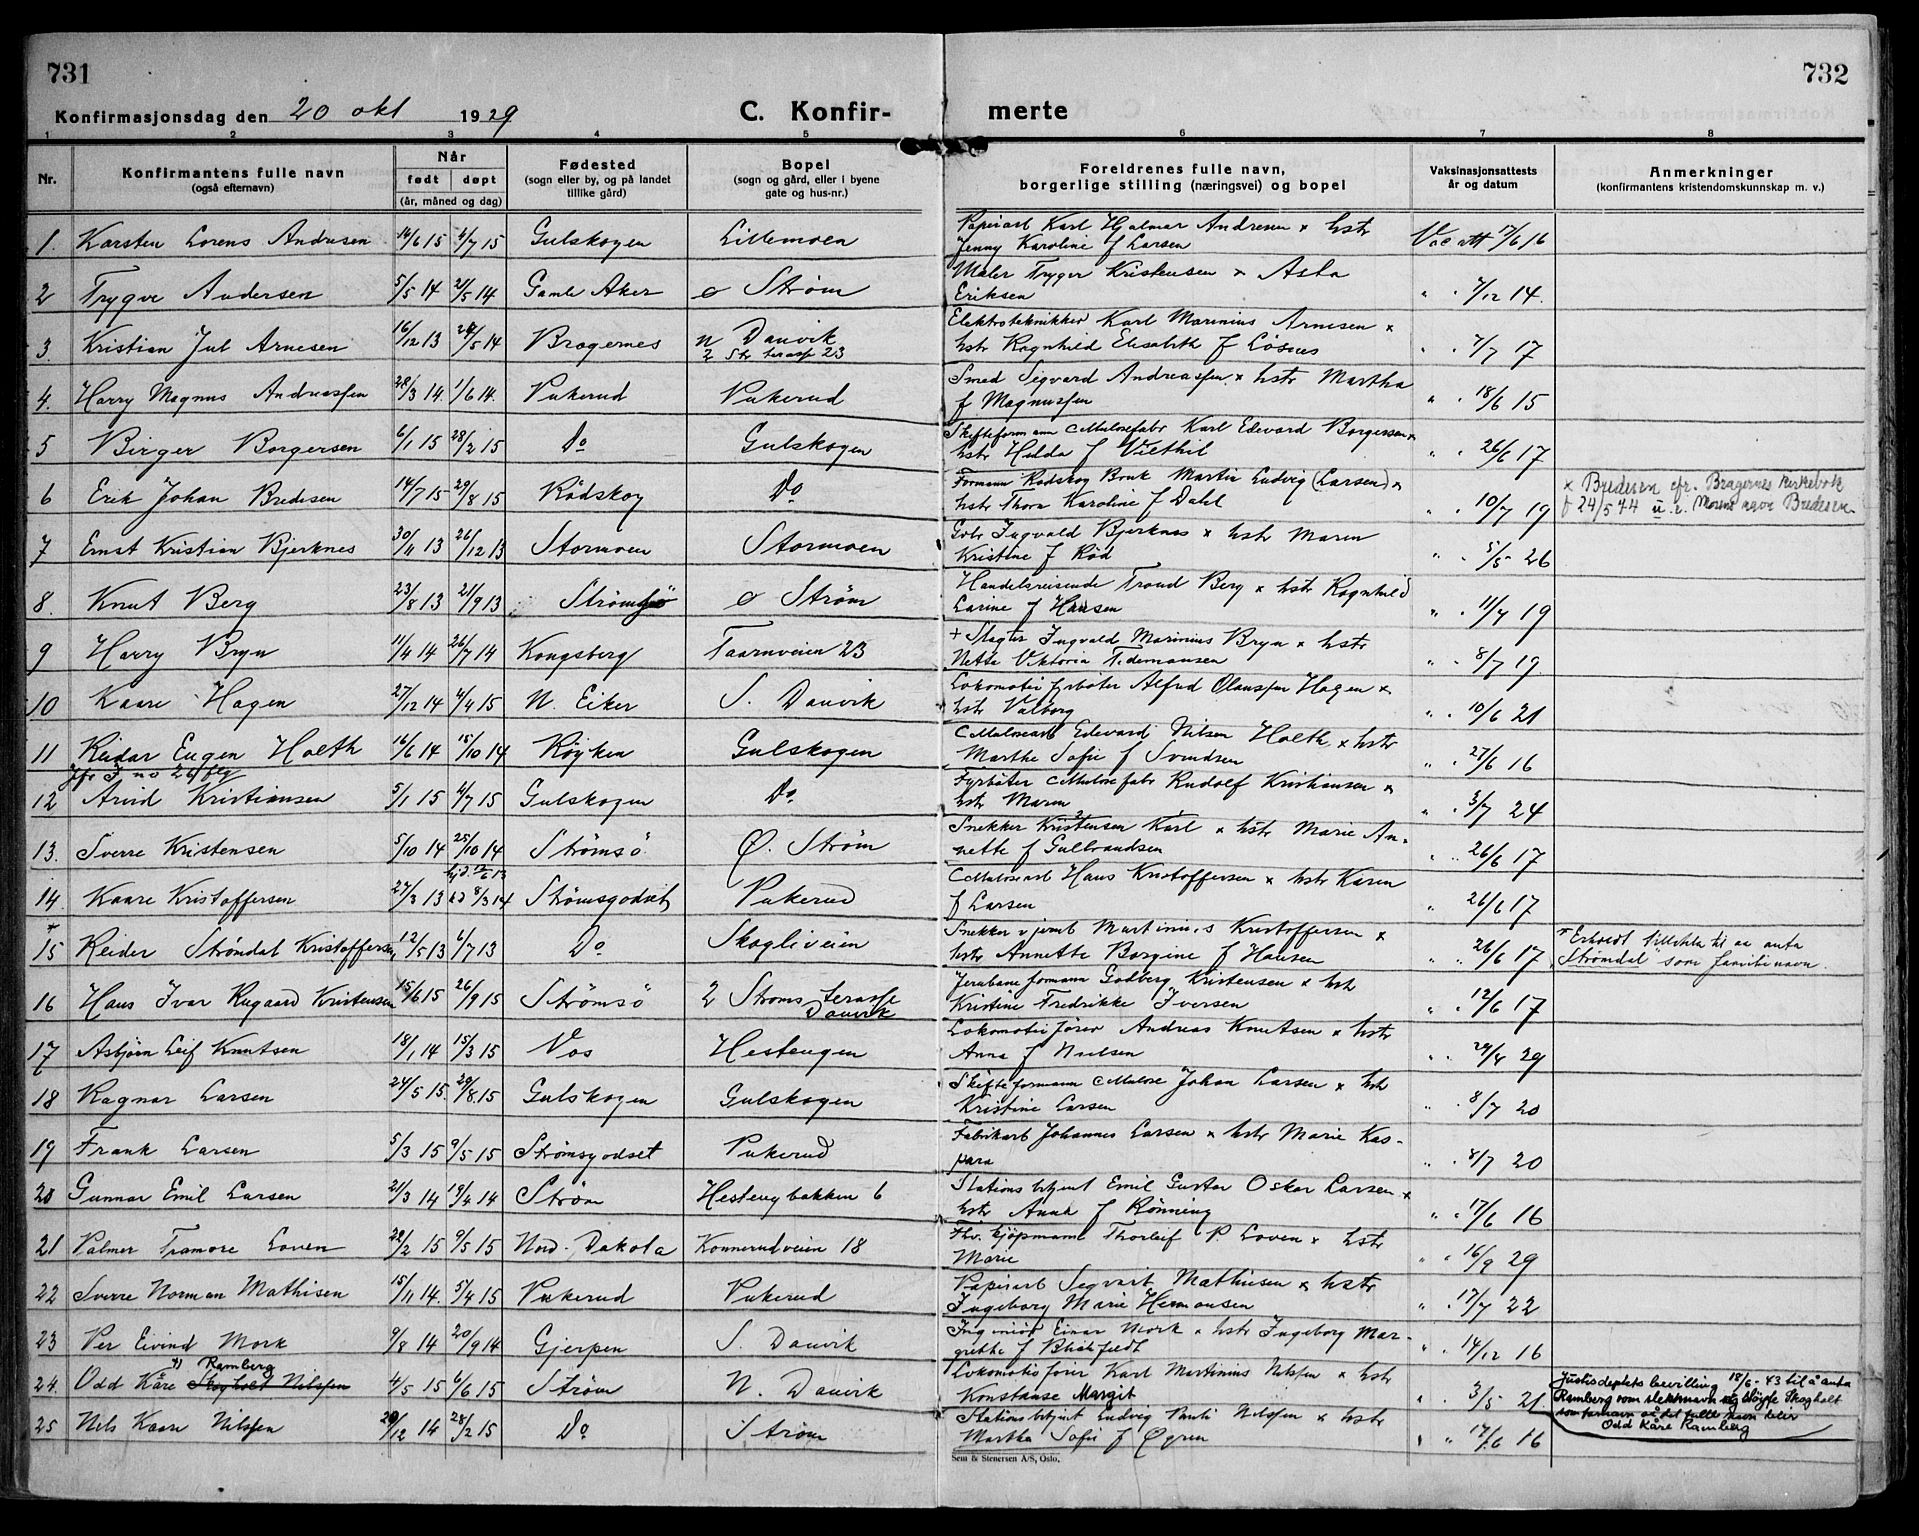 731
732
Konfirmasjonsdag den 20 okt 1929
C. Konfir-
merte
1 2 3 4 5 6 7 8
Nr.
Konfirmantens fulle navn
(også efternavn)
Når
født døpt
(år, måned og dag)
Fødested
(sogn eller by, og på landet
tillike gård)
Bopel
(sogn og gård, eller i byene
gate og hus-nr.)
Foreldrenes fulle navn,
borgerlige stilling (næringsvei) og bopel
Vaksinasjonsattests
år og datum
Anmerkninger
(konfirmantens kristendomskunnskap m. v.)
1. Karsten Lorens Andresen 14/6 15 4/7 15 Gulskogen Lillemoen Papirarb Karl Hjalmar Andresen x hstr Vac att 17/6 16
Jenny Karoline f Larsen
2 Trygve Andersen 5/5 14 21/5 14 Gamle Aker ø Strøm Maler Trygve Kristensen x Asta " " 7/12 14.
Eriksen
3. Kristian Jul Arnesen 16/12 13 24/5 14 Bragernes N Danvik Elektrotekniker Karl Marinius Arnesen x
2 Str terasse 23 hstr Ragnhild Elisabeth f Løsnes " " 7/7 17
4. Harry Magnus Andreassen 28/3 14. 1/6 14. Pukerud Pukerud Smed Sigvard Andreassen x hstr Martha
f Magnussen " " 18/6 15
5 Birger Borgersen 6/1 15 28/2 15 Do Gulskogen Skifteformann Cellulosefabr Karl Edevard Borgersen x
hstr Hulda f Viethil " " 26/6 17
6 Erik Johan Bredesen 14/7 15 29/8 15 Rødskog Do Formann Rødskog Bruk Martin Ludvig (Larsen) x
hstr Thora Karoline f Dahl " " 10/7 19
x Bredesen cfr. Bragernes kirkebok
f 24/5 44 u.e. Morens navn Bredesen
7 Ernst Kristian Bjerknes 30/11 13 26/12 13 Stormoen Stormoen Gbr Ingvald Bjerknes x hstr Maren
Kristine f Rød " " 5/5 26
8. Knut Berg 23/8 13 21/9 13 Strømsø ø Strøm Handelsreisende Trond Berg x hstr Ragnhild
Larine f Hansen " " 11/7 19
9 Harry Bryn 11/4 14 26/7 14 Kongsberg Taarnveien 23 + Slagter Ingvald Marinius Bryn x hstr
Nette Viktoria Tidemansen " " 8/7 19.
10 Kaare Hagen 27/12 14 4/4 15 N. Eiker S. Danvik Lokomotivfyrbøter Alfred Olaussen Hagen x
hstr Valborg " " 10/6 21
11 Reidar Eugen Holth 16/6 14 18/10 14 Røyken Gulskogen Cellulosearb Edevard Nilsen Holth x hstr
Marthe Sofie f Svendsen " " 27/6 16
Jfr I no 26 flg
12 Arvid Kristiansen 5/1 15 4/7 15 Gulskogen Do Fyrbøter Cellulosefabr Rudolf Kristiansen x
hstr Maren " " 3/7 24
13. Sverre Kristensen 5/10 14 25/10 14 Strømsø Ø. Strøm Snekker Kristensen Karl x hstr Marie An-
nette f Gulbrandsen " " 26/6 17
14. Kaare Kristoffersen 27/3 13 hjd. 12/6 13 8/3 14 Strømsgodset Pukerud Cellulosearb Hans Kristoffersen x hstr Karen
f Larsen " 26/6 17
+
15 Reidar Strøndal Kristoffersen 12/5 13 6/7 13 Do Skogliveien Snekker v jernb Martinius Kristoffersen x
hstr Annette Borgine f Hansen " " 26/6 17
+ Erholdt tillatelse til aa anta
"Strømdal" som familienavn.
16 Hans Ivar Rugaard Kristensen 15/6 15 26/9 15 Strømsø 2 Stroms terasse Jernbaneformann Godberg Kristensen x hstr
Danvik Kristine Fredrikke Iversen " " 12/6 17
17 Asbjørn Leif Knutsen 18/1 14 15/3 15 Vos Hestengen Lokomotivfører Andreas Knutsen x hstr
Anna f Nielsen " " 29/4 29
18 Ragnar Larsen 24/5 15. 29/8 15 Gulskogen Gulskogen Skifteformann Cellulose Johan Larsen x hstr
Kristine Larsen " " 8/7 20
19 Frank Larsen 5/3 15 9/5 15 Strømsgodset Pukerud Fabrikarb Johannes Larsen x hstr Marie Kas-
para " " 8/7 20
20 Gunnar Emil Larsen 21/3 14 19/4 14 Strøm Hestengbakken 6 Stationsbtjent Emil Gustav Oskar Larsen x
hstr Anna f Rønning " " 17/6 16
21 Palmer Tramore Loven 22/2 15 9/5 15 Nord-Dakota Konnerudveien 18 Fhv. kjøpmann Thorleif P Loven x hstr
Marie " " 16/9 29
22 Sverre Norman Mathisen 15/11 14. 5/4 15 Pukerud Pukerud Papirarb Segvart Mathiesen x hstr
Ingeborg Marie Hermansen " " 17/7 22
23 Per Eivind Mork 9/8 14 20/9 14 Gjerpen S. Danvik Ingeniør Einar Mork x hstr Ingeborg Mar-
grethe f Blichfeldt " " 14/12 16
x) Ramberg
24. Odd Kåre Skogholt Nilssen 4/5 15 6/6 15 Strøm N. Danvik Lokomotivfører Karl Martinius Nilssen x hstr
Konstanse Margit " " 3/5 21
Justisdeptets bevilling 18/6-43 til å anta
Ramberg som slektsnavn og sløyfe Skogholt
som fornavn så det fulle navn blir
Odd Kåre Ramberg
25 Nils Kaare Nilssen 29/12 14 28/2 15 Do Strøm Stationsbtjent Ludvig Nilssen x hstr
Martha Sofie f Ogren " " 17/6 16
Sem & Stenersen A/S, Oslo.